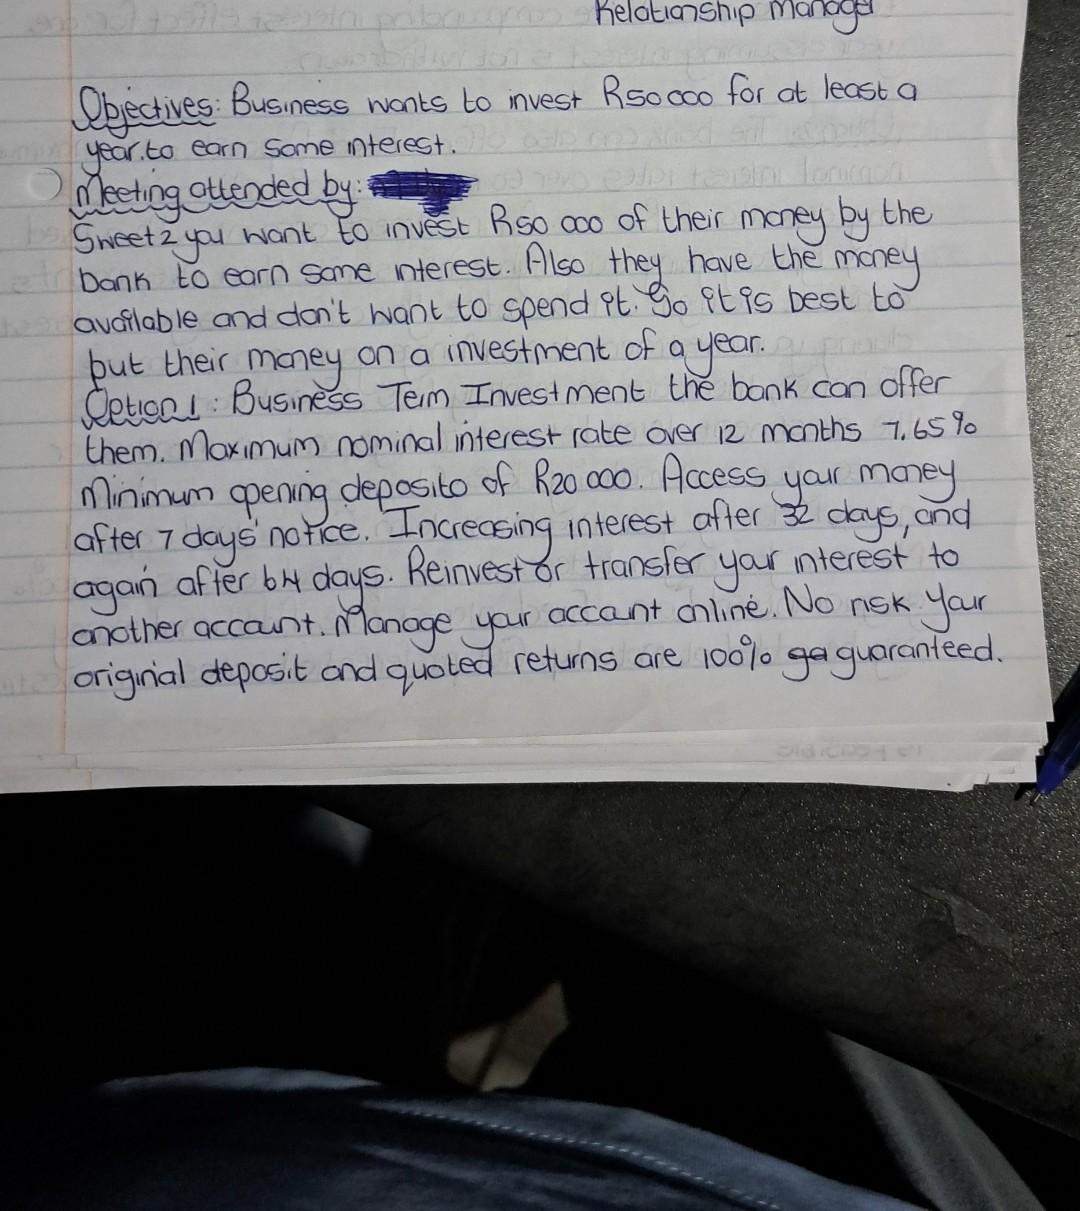 Relationship Manager
Objectives: Business wants to invest R50 000 for at least a
year.to earn some interest.
Meeting attended by:
Sweet 2 you want to invest R50 000 of their money by the
bank to earn some interest. Also they have the money
available and don't want to spend it. So it is best to
put their money on a investment of a year.
Option 1: Business Term Investment the bank can offer
them. Maximum nominal interest rate over 12 months 7,65%
Minimum opening deposito of R20 000. Access your money
after 7 days' notice. Increasing interest after 32 days, and
again after 64 days. Reinvest or transfer your interest to
another account. Manage your account online. No risk your
original deposit and quoted returns are 100% ga guaranteed.